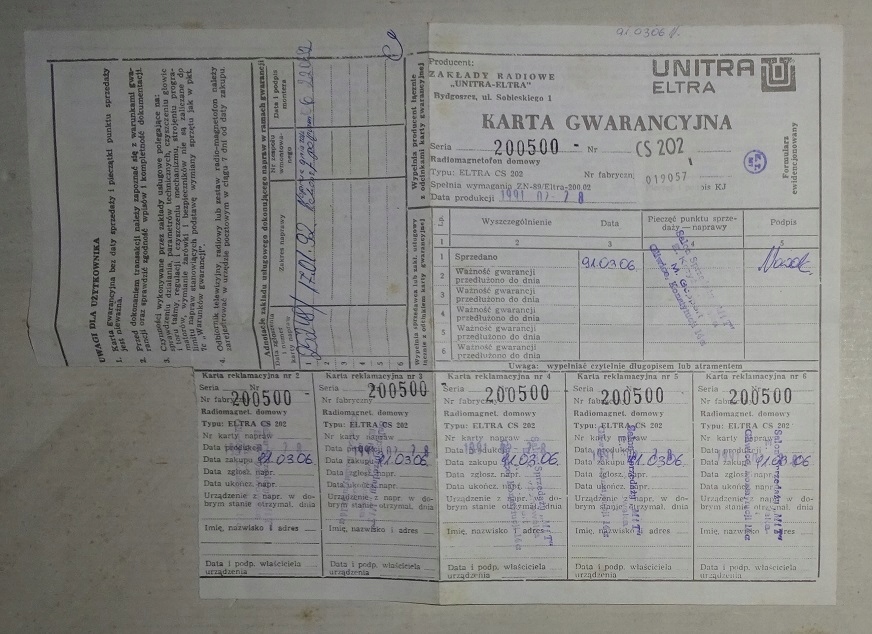 91.0306 r.
Producent:
ZAKŁADY RADIOWE
„UNITRA-ELTRA"
Bydgoszcz, ul. Sobieskiego 1
UNITRA
ELTRA
KARTA GWARANCYJNA
Seria 200500 - Nr CS 202
Radiomagnetofon domowy
Typu: ELTRA CS 202 Nr fabryczn. 019057
Spełnia wymagania ZN-89/Eltra-200.02 pis KJ
Data produkcji 1991 02 28
Formularz
ewidencjonowany
Wypełnia producent łącznie
z odcinkami karty gwarancyjnej
Wypełnia sprzedawca lub zakł. usługowy
łącznie z odcinkiem karty gwarancyjnej
Lp. Wyszczególnienie Data Pieczęć punktu sprze-
daży — naprawy Podpis
1 2 3 4 5
1 Sprzedano 91.03.06.
2 Ważność gwarancji
przedłużono do dnia
3 Ważność gwarancji
przedłużono do dnia
4 Ważność gwarancji
przedłużono do dnia
5 Ważność gwarancji
przedłużono do dnia
6 Ważność gwarancji
przedłużono do dnia
Uwaga: wypełniać czytelnie długopisem lub atramentem
UWAGI DLA UŻYTKOWNIKA
1. Karta gwarancyjna bez daty sprzedaży i pieczątki punktu sprzedaży
jest nieważna.
2. Przed dokonaniem transakcji należy zapoznać się z warunkami gwa-
rancji oraz sprawdzić zgodność wpisów i kompletność dokumentacji.
3. Czynności wykonywane przez zakłady usługowe polegające na:
sprawdzeniu działania, parametrów technicznych, czyszczeniu głowic
i toru taśmy, regulacji i czyszczeniu mechanizmu, strojeniu progra-
matorów, wymianie żarówki i bezpieczników nie są zaliczane do
limitu napraw stanowiących podstawę wymiany sprzętu jak w pkt.
7c „Warunków gwarancji".
4. Odbiornik telewizyjny, radiowy lub zestaw radio-magnetofon należy
zarejestrować w urzędzie pocztowym w ciągu 7 dni od daty zakupu.
Adnotacje zakładu usługowego dokonującego napraw w ramach gwarancji
Data zgłoszenia
i numer
karty napraw
Zakres naprawy
Nr zespołu
wmontowa-
nego
Data i podpis
montera
1 17.01.92
2
3
4
5
6
Karta reklamacyjna nr 2
Seria Nr
200500
Nr fabryczny
Radiomagnet. domowy
Typu: ELTRA CS 202
Nr karty napraw
Data produkcji
Data zakupu 91.03.06.
Data zgłosz. napr.
Data ukończ. napr.
Urządzenie z napr. w do-
brym stanie otrzymał. dnia
Imię, nazwisko i adres
Data i podp. właściciela
urządzenia
Karta reklamacyjna nr 3
Seria
200500
Nr fabryczny
Radiomagnet. domowy
Typu: ELTRA CS 202
Nr karty napraw
Data produkcji
Data zakupu 91.03.06.
Data zgłosz. napr.
Data ukończ. napr.
Urządzenie z napr. w do-
brym stanie otrzymał. dnia
Imię, nazwisko i adres
Data i podp. właściciela
urządzenia
Karta reklamacyjna nr 4
Seria
200500
Nr fabryczny
Radiomagnet. domowy
Typu: ELTRA CS 202
Nr karty napraw
Data produkcji
Data zakupu 91.03.06.
Data zgłosz. napr.
Data ukończ. napr.
Urządzenie z napr. w do-
brym stanie otrzymał. dnia
Imię, nazwisko i adres
Data i podp. właściciela
urządzenia
Karta reklamacyjna nr 5
Seria
200500
Nr fabryczny
Radiomagnet. domowy
Typu: ELTRA CS 202
Nr karty napraw
Data produkcji
Data zakupu 91.03.06.
Data zgłosz. napr.
Data ukończ. napr.
Urządzenie z napr. w do-
brym stanie otrzymał. dnia
Imię, nazwisko i adres
Data i podp. właściciela
urządzenia
Karta reklamacyjna nr 6
Seria
200500
Nr fabryczny
Radiomagnet. domowy
Typu: ELTRA CS 202
Nr karty napraw
Data produkcji
Data zakupu 91.03.06
Data zgłosz. napr.
Data ukończ. napr.
Urządzenie z napr. w do-
brym stanie otrzymał. dnia
Imię, nazwisko i adres
Data i podp. właściciela
urządzenia